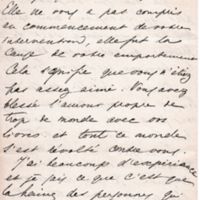 Elle ne vous a pas compris
au commencement de votre
intervention, elle fut la
cause de votre emportement
Cela signifie que vous n'étiez
pas assez aimé. Vous avez
blessé l'amour propre de
trop de monde avec vos
livres et tout ce monde
s'est révolté contre vous.
J'ai beaucoup d'expérience
et je sais ce que c'est que
la haine des personnes qui